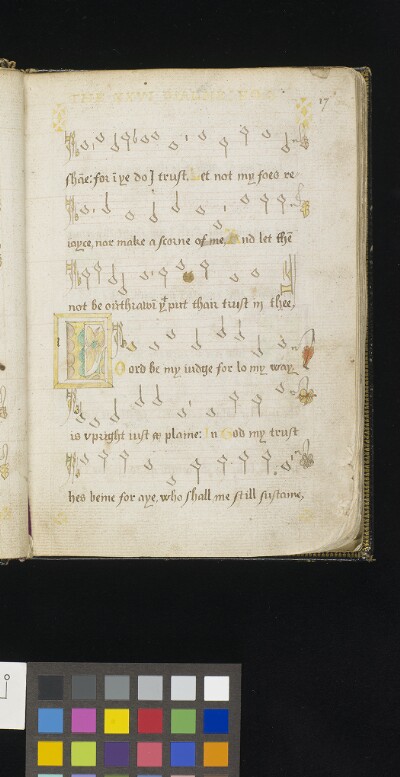 THE XXVI PSALME
17
shãe: for ī ye do I trust. Let not my foes re
ioyce, nor make a scorne of me, And let thē
not be outhrawī yt put thair trust in thee.
Lord be my iudge for lo my way
is vpright iust & plaine: In God my trust
hes beine for aye, who shall me still sustaine,